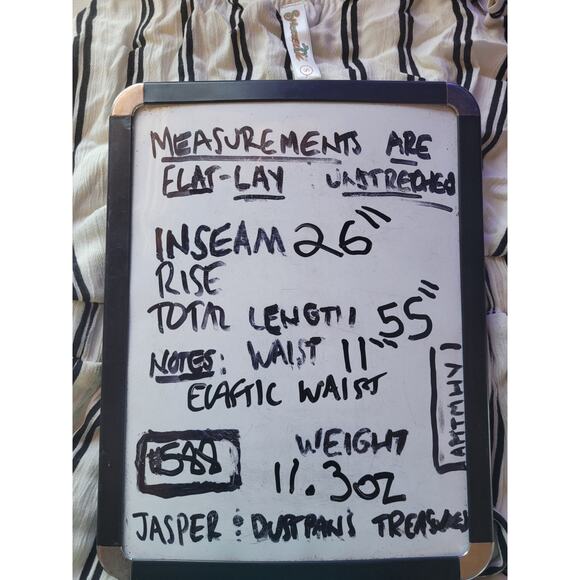 S
MEASUREMENTS ARE
FLAT-LAY UNSTRECHED
INSEAM 26"
RISE
TOTAL LENGTH 55"
NOTES: WAIST 11"
ELASTIC WAIST
WEIGHT
11.3oz
JASPER : DUSTPANS TREASURES